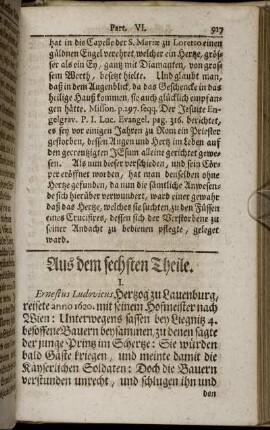 Part. VI. 927
hat in die Capelle der S. Mariæ zu Loretto einen
güldnen Engel verehret, welcher ein Hertze, grös-
ser als ein Ey, gantz mit Diamanten, von gros-
sem Werth, besetzt hielte. Und glaubt man,
daß in dem Augenblick, da das Geschencke in das
heilige Hauß kommen, sie auch glücklich empfan-
gen hätte. Misson. p. 197. seqq. Der Jesuite En-
gelgrav. P. I. Luc. Evangel. pag. 316. berichtet,
es sey vor einigen Jahren zu Rom ein Priester
gestorben, dessen Augen und Hertz im Leben auf
den gecreutzigten JEsum alleine gerichtet gewe-
sen. Als nun dieser verschieden, und sein Cör-
per eröffnet worden, hat man denselben ohne
Hertze gefunden, da nun die sämtliche Anwesen-
de sich hierüber verwundert, ward einer gewahr
daß das Hertze, welches sie suchten, zu den Füssen
eines Crucifixes, dessen sich der Verstorbene zu
seiner Andacht zu bedienen pflegte, geleget
ward.
Aus dem sechsten Theile.
I.
Ernestus Ludovicus, Hertzog zu Lauenburg,
reisete anno 1620. mit seinem Hofmeister nach
Wien: Unterweges sassen bey Liegnitz 4.
besoffene Bauern beysammen, zu denen sagte
der junge Printz im Schertze: Sie würden
bald Gäste kriegen, und meinte damit die
Kayserlichen Soldaten: Doch die Bauern
verstunden unrecht, und schlugen ihn und
den